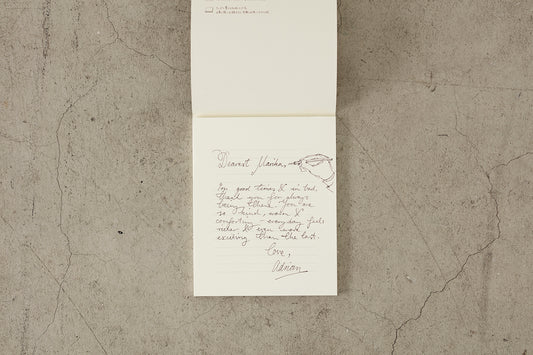 Dearest Marika,
For good times & in bad,
thank you for always
being there. You are
so kind, warm &
comforting everyday feels
nicer & even more
exciting than the last.
Love,
Adrian